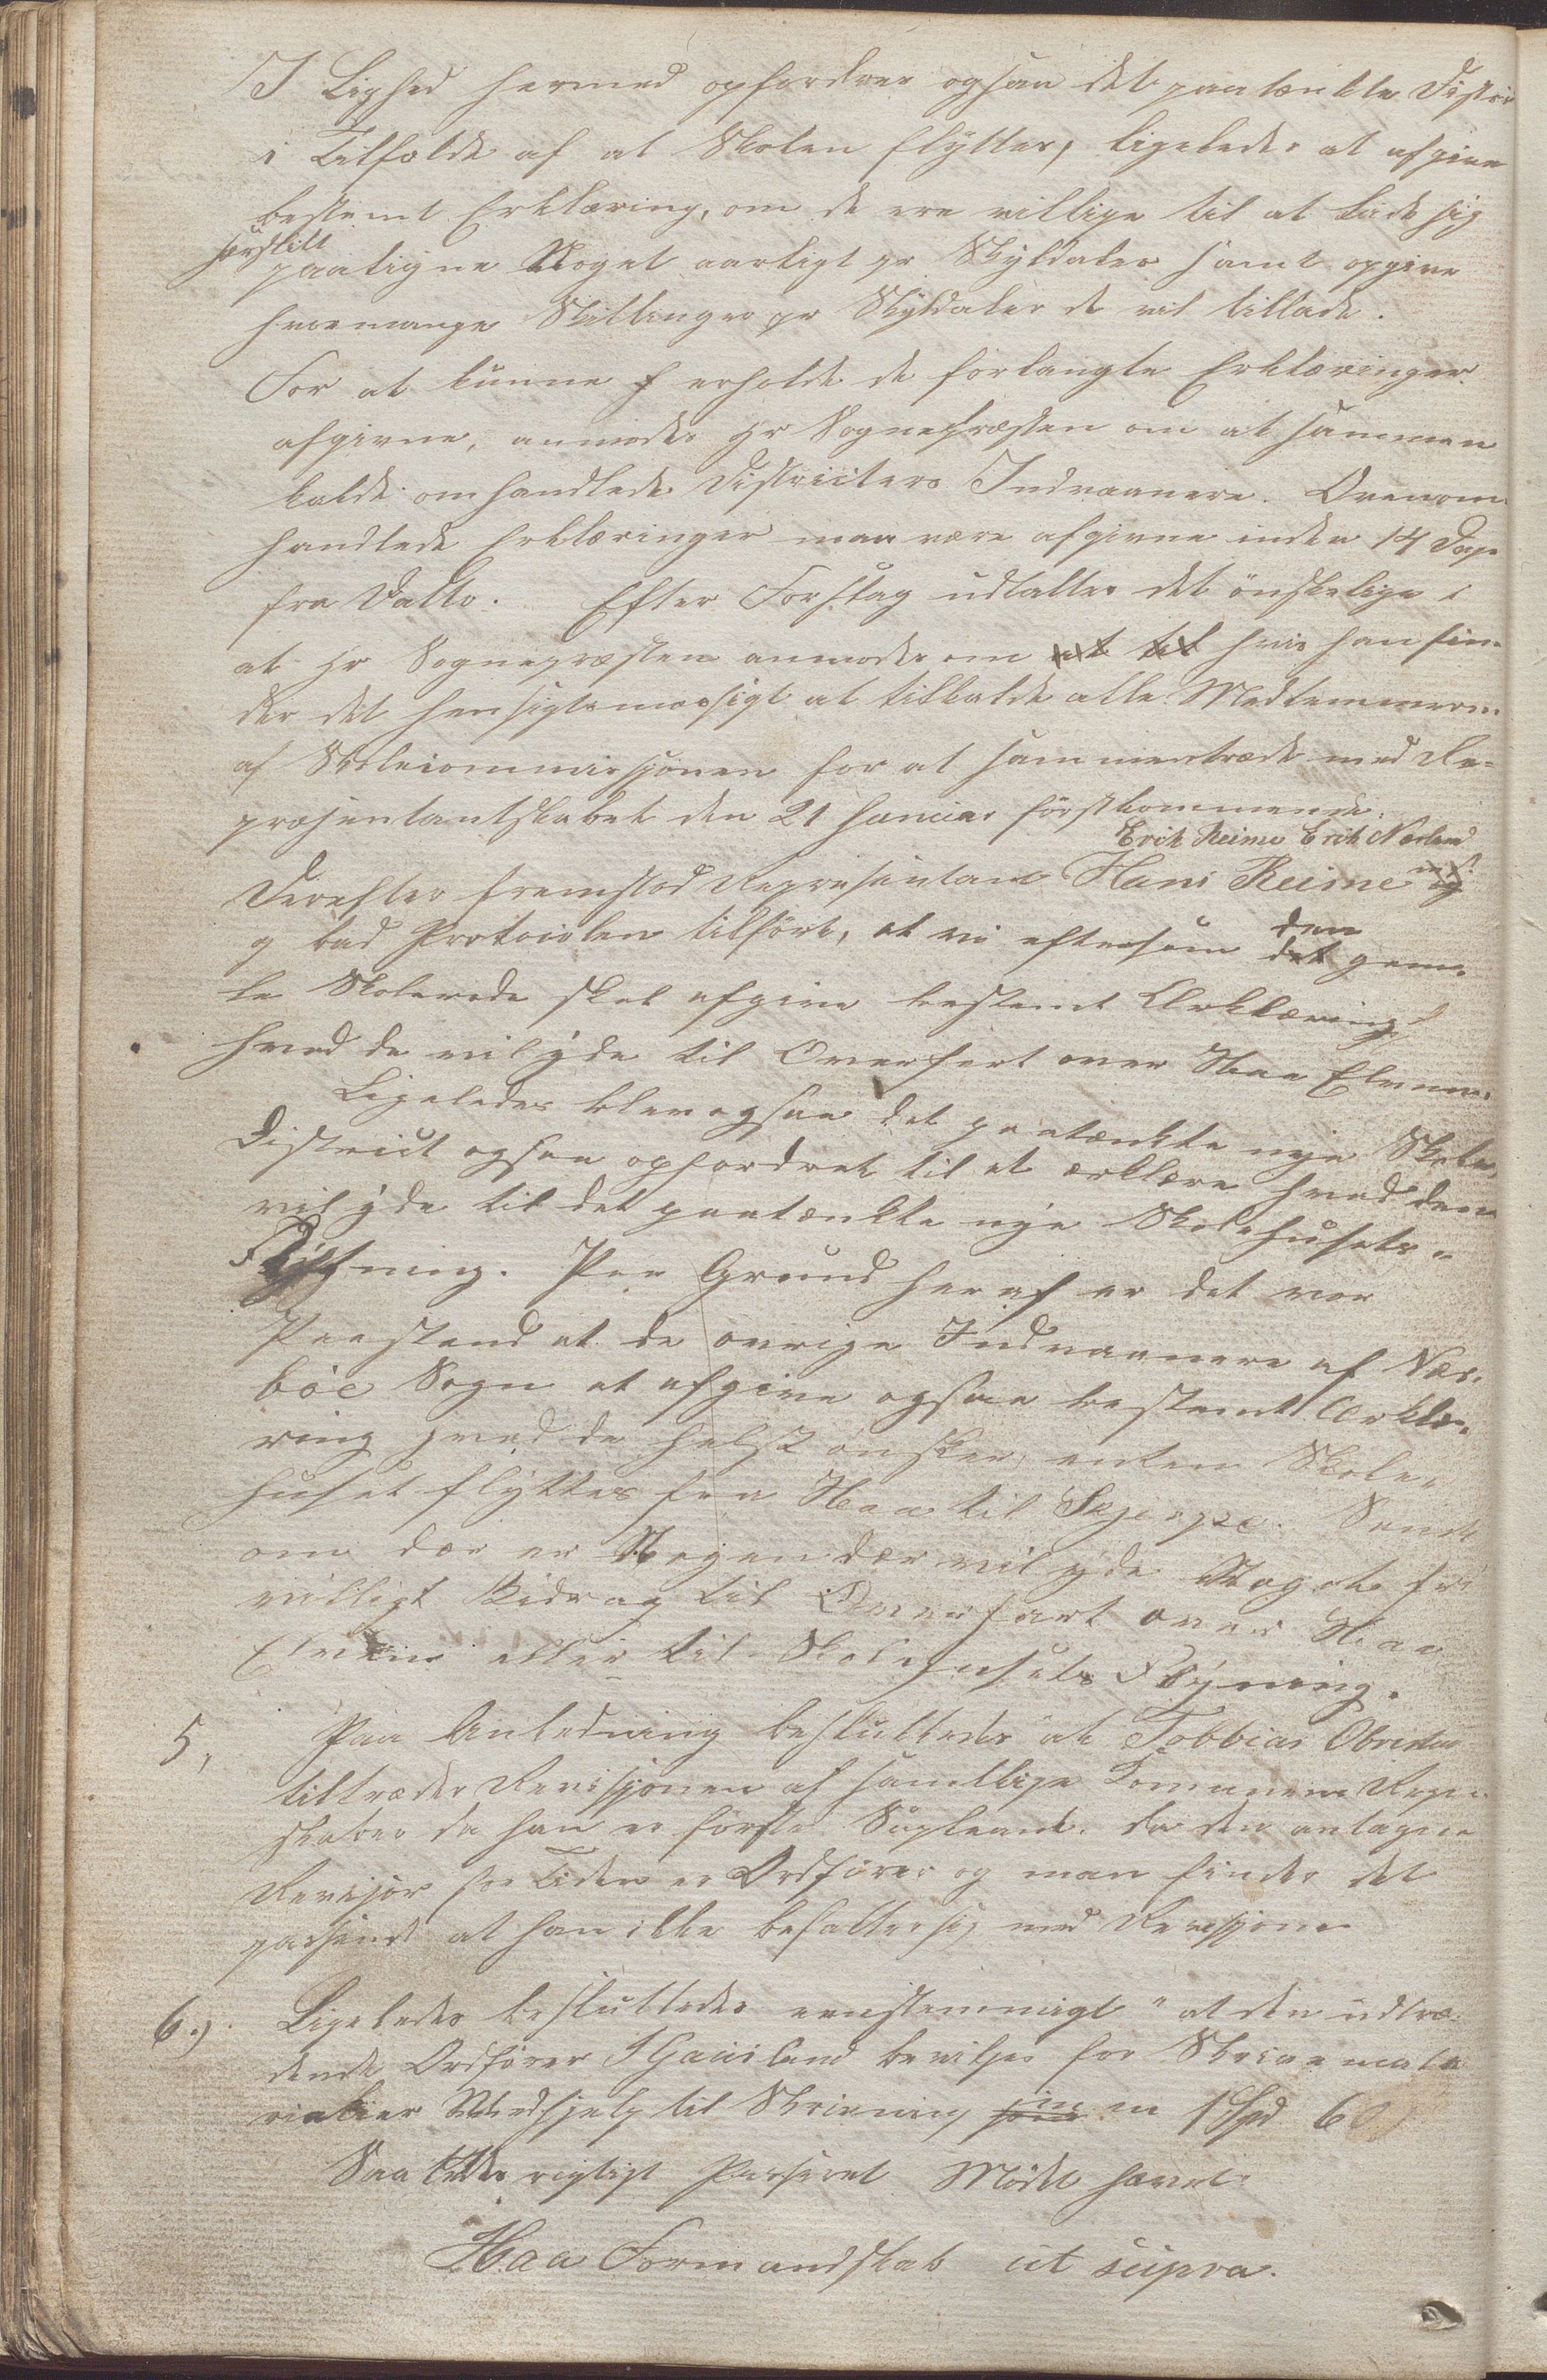 I Lighed hermed opfordres ogsaa det paatænkte Distri
i Tilfælde af at Skolen flyttes, ligeledes at afgive
bestemt Erklæring, om de ere villige til at lade sig
særskilt
paaligne Noget aarligt pr Skyldaler samt opgive
hvormange Skillinger pr Skyldaler de vil tillade.
For at kunne erholde de forlangte Erklæringer
afgivne, anmodes Hr Sognepræsten om at sammen
kalde omhandlede Districters Indvaanere. Ovenom-
handlede Erklæringer maa være afgivne inden 14 Dage
fra Datto. Efter Forslag udtaltes det ønskelige i
at Hr Sognepræsten anmodes om at til hvis han fin-
der det hensigtsmæssigt at tilkalde alle Medlemmerne
af Skolecommissjonen for at sammentræde med Re-
præsentantskabet den 21 Januar førstkommende.
Erik Reime Erik Nærland
Derefter fremstod Repræsentant Hans Reime og
g bad Protocolen tilført, at vi eftersom den det gam-
le Skolerode skal afgive bestemt Ærklæring
hvad de vil yde til Overfart over Haa Elven.
Ligeledes blev ogsaa det paatænkte nye Skole-
District ogsaa opfordret til at ærklære hvad den
vil yde til det paatænkte nye Skolehusets
Flytning. Paa Grund heraf er det vor
Paastand at de øvrige Indvaanere af Nær-
bøe Sogn at afgive ogsaa bestemt Ærklæ-
ring hvad de helst ønsker, enten Skole-
huset flyttes fra Haa til Skjerpe. Samt
om der er Nogen der vil yde Noget fri
villigt Bidrag til Overfart over Haa
Elven eller til Skolehusets Flyning.
5, Paa Anledning besluttedes at Tobbias Obrestad
tiltræder Revisjonen af samtlige Comunens Regn-
skaber da han er første Supleant. da den antagne
Revisor for Tiden er Ordfører og man finder det
passende at han ikke befatter sig med Revisjonen
6.) Ligeledes besluttedes eenstemmigt "at den udtræ-
dende Ordfører Haviland bevilges for Skrivemate
rialier Medhjelp til Skrivning m 1 Spd 60
Saaledes rigtigt Passeret Mødet hævet.
Haa Formandskab ut supra.